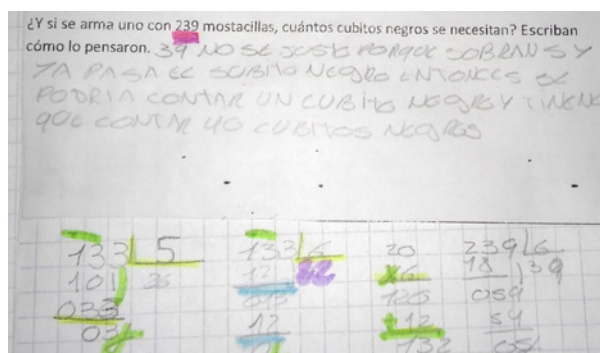 ¿Y si se arma uno con 239 mostacillas, cuántos cubitos negros se necesitan? Escriban
cómo lo pensaron. 39 NO SE JUSTO PORQUE SOBRAN 5 Y
YA PASA EL CUBITO NEGRO ENTONCES SE
PODRIA CONTAR UN CUBITO NEGRO Y TINENE
QUE CONTAR 40 CUBITOS NEGROS
133 5 133 6 20 239 6
101 26 12 22 x6 18 39
033 013 120 059
03 12 +12 54
132 05